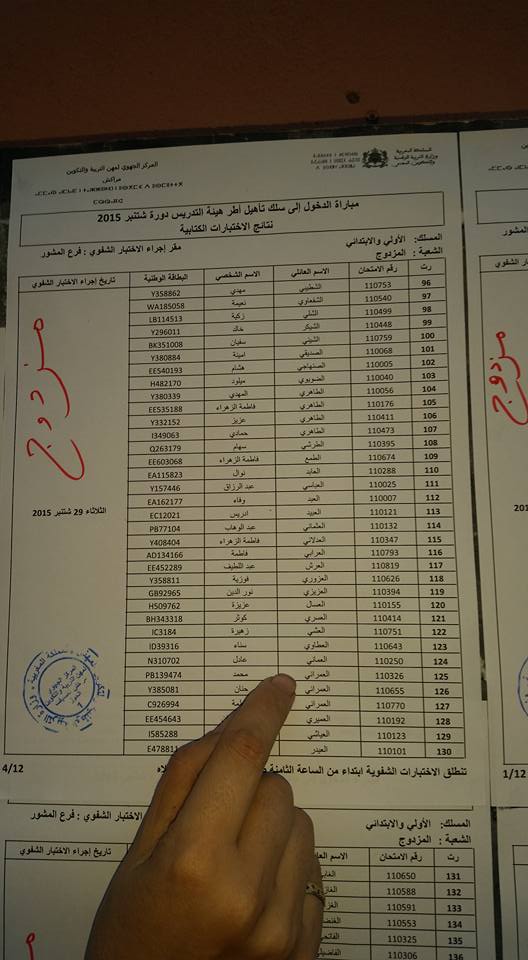 المملكة المغربية
المركز الجهوي لمهن التربية والتكوين
مراكش
مباراة الدخول إلى سلك تأهيل أطر هيئة التدريس دورة شتنبر 2015
نتائج الاختبارات الكتابية
المسلك: الأولي والابتدائي
الشعبة : المزدوج
مقر إجراء الاختبار الشفوي : فرع المشور
رت رقم الامتحان الاسم العائلي الاسم الشخصي البطاقة الوطنية تاريخ إجراء الاختبار الشفوي
96 110753 الشطيبي مهدي Y358862
97 110540 الشفعاوي نعيمة WA185058
98 110499 الشلي زكية LB114513
99 110448 الشيكر خالد Y296011
100 110759 الشيني سفيان BK351008
101 110068 الصديقي امينة Y380884
102 110005 الصنهاجي هشام EE540193
103 110040 الضويوي ميلود H482170
104 110056 الطاهري المهدي Y380339
105 110176 الطاهري فاطمة الزهراء EE535188
106 110411 الطاهري عزيز Y332152
107 110473 الطاهري حمادي I349063
108 110395 الطرشي سهام Q263179
109 110674 الطمع فاطمة الزهراء EE603068
110 110288 العابد نوال EA115823
111 110025 العباسي عبد الرزاق Y157446
112 110007 العبد وفاء EA162177
113 110121 العبيد ادريس EC12021
114 110132 العثماني عبد الوهاب PB77104
115 110347 العدلاني فاطمة الزهراء Y408404
116 110793 العرابي فاطمة AD134166
117 110819 العرش عبد اللطيف EE452289
118 110626 العزوري فوزية Y358811
119 110394 العزيزي نور الدين GB92965
120 110155 العسال عزيزة HS09762
121 110414 العسري كوثر BH343318
122 110751 العشي زهيرة IC3184
123 110643 العطاوي سناء ID39316
124 110250 العماني عادل N310702
125 110326 العمراني محمد PB139474
126 110655 العمراني حنان Y385081
127 110770 العمراني C926994
128 110192 العميري EE454643
129 110123 العياشي I585288
130 110101 العيدر E478811
مزدوج
الثلاثاء 29 شتنبر 2015
تنطلق الاختبارات الشفوية ابتداء من الساعة الثامنة
4/12
المسلك: الأولي والابتدائي
الشعبة : المزدوج
الاختبار الشفوي : فرع المشور
رت رقم الامتحان تاريخ إجراء الاختبار الشفوي
131 110650
132 110588
133 110591
134 110553
135 110325
136 110306
مزدوج
1/12